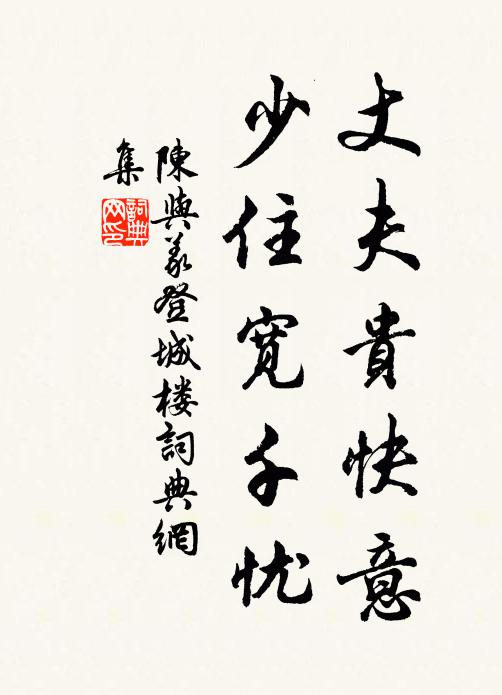 丈夫貴快意
少住寬千忧
陳與义登城楼詞典網
集
詞典
网印